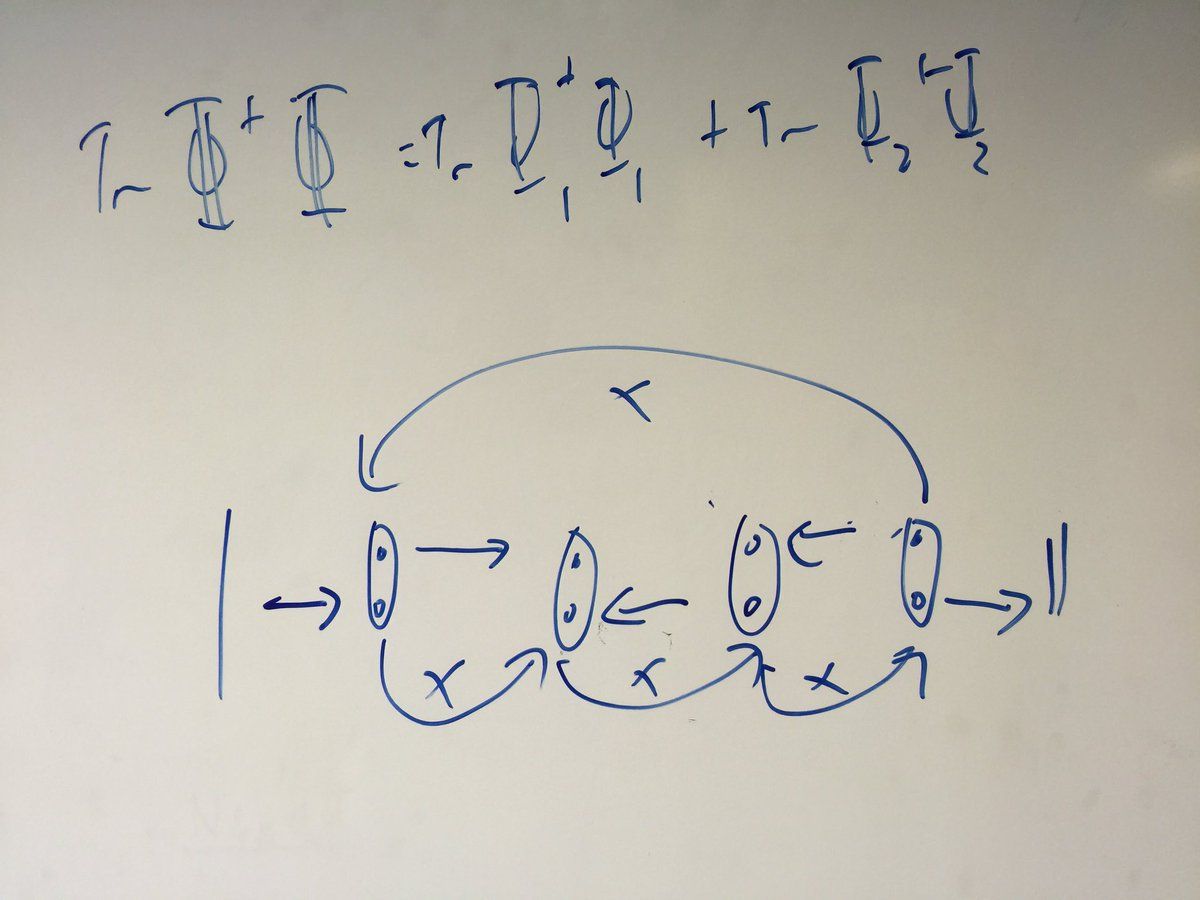 Tr Φ† Φ = Tr Φ†₁ Φ₁ + Tr Φ₂† Φ₂
x
x x x